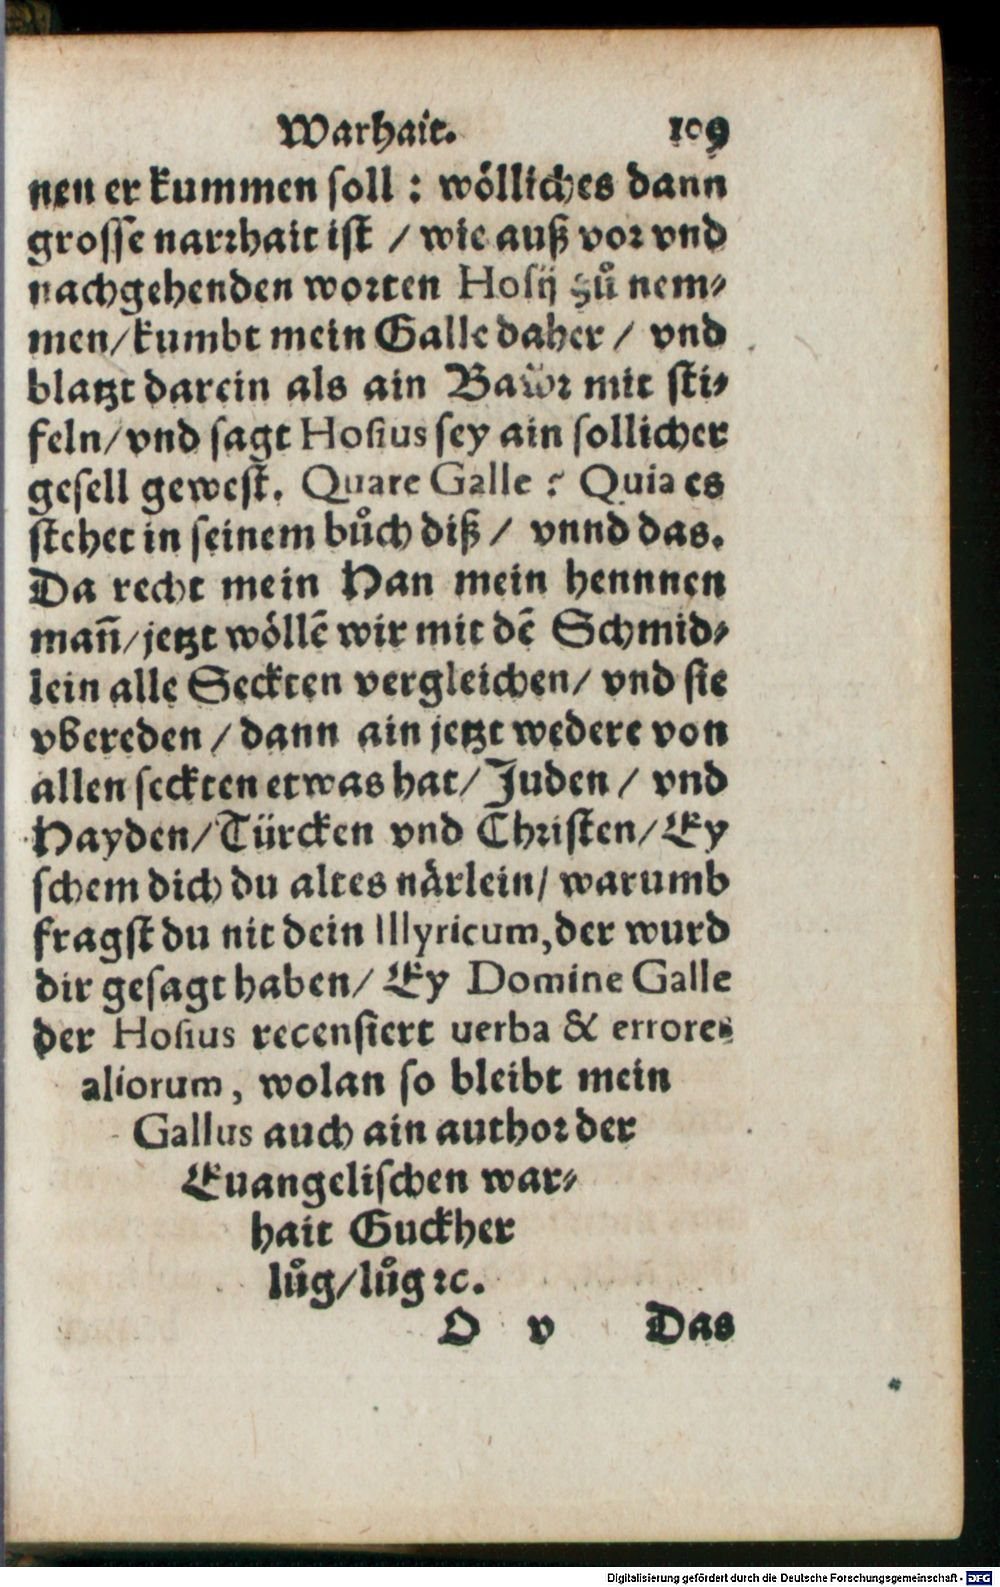 Warhait. 109
nen er kummen soll : wölliches dann
grosse narrhait ist / wie auß vor vnd
nachgehenden worten Hosij zů nem-
men/kumbt mein Galle daher / vnd
blatzt darein als ain Bawr mit sti-
feln/vnd sagt Hosius sey ain sollicher
gesell gewest. Quare Galle ? Quia es
stehet in seinem bůch diß / vnnd das.
Da recht mein Han mein hennnen
mañ/jetzt wöllē wir mit dē Schmid-
lein alle Seckten vergleichen/ vnd sie
vbereden / dann ain jetzt wedere von
allen seckten etwas hat/ Juden / vnd
Hayden/Türcken vnd Christen/ Ey
schem dich du altes närlein/ warumb
fragst du nit dein Illyricum,der wurd
dir gesagt haben/ Ey Domine Galle
der Hosius recensiert uerba & errores
aliorum, wolan so bleibt mein
Gallus auch ain author der
Euangelischen war-
hait Guckher
lůg/lůg ꝛc.
O v Das
Digitalisierung gefördert durch die Deutsche Forschungsgemeinschaft - DFG